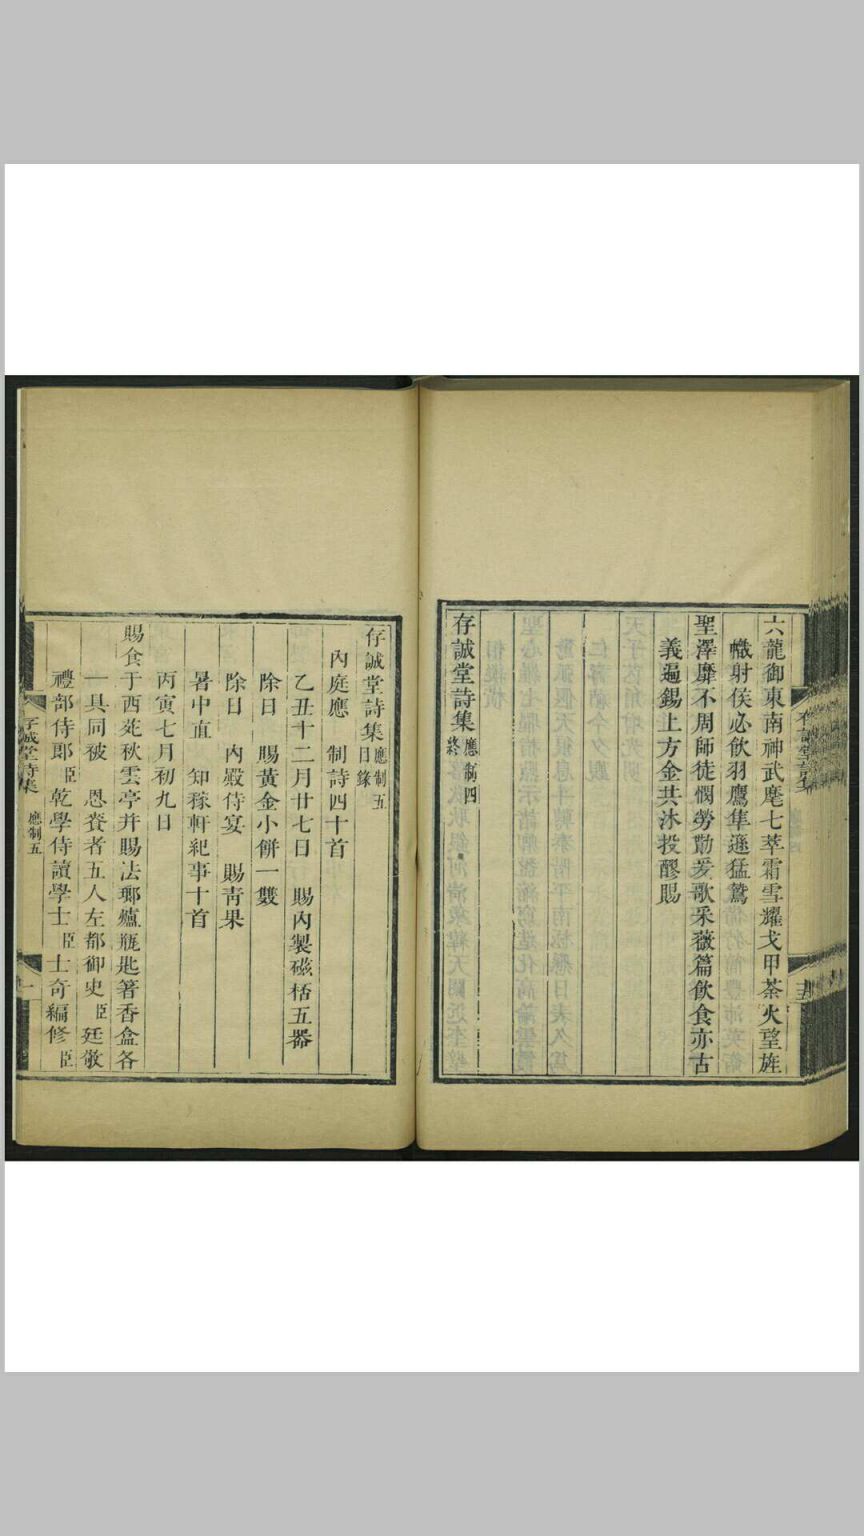 六龍御東南神武麾七萃霜雪耀戈甲荼火望旌
幟射侯必飲羽鷹隼遜猛鷙
聖澤靡不周師徒憫勞勩爰歌采薇篇飲食亦古
義遍錫上方金共沐投醪賜
存誠堂詩集應制四終
存誠堂詩集應制五目錄
內庭應 制詩四十首
乙丑十二月廿七日 賜內製磁桮五器
除日 賜黃金小餅一雙
除日 內殿侍宴 賜青果
暑中直 知稼軒紀事十首
丙寅七月初九日
賜食于西苑秋雲亭并賜法瑯爐瓶匙箸香盒各
一具同被 恩賚者五人左都御史臣廷敬
禮部侍郎臣乾學侍讀學士臣士奇編修臣
存誠堂詩集 應制五 一